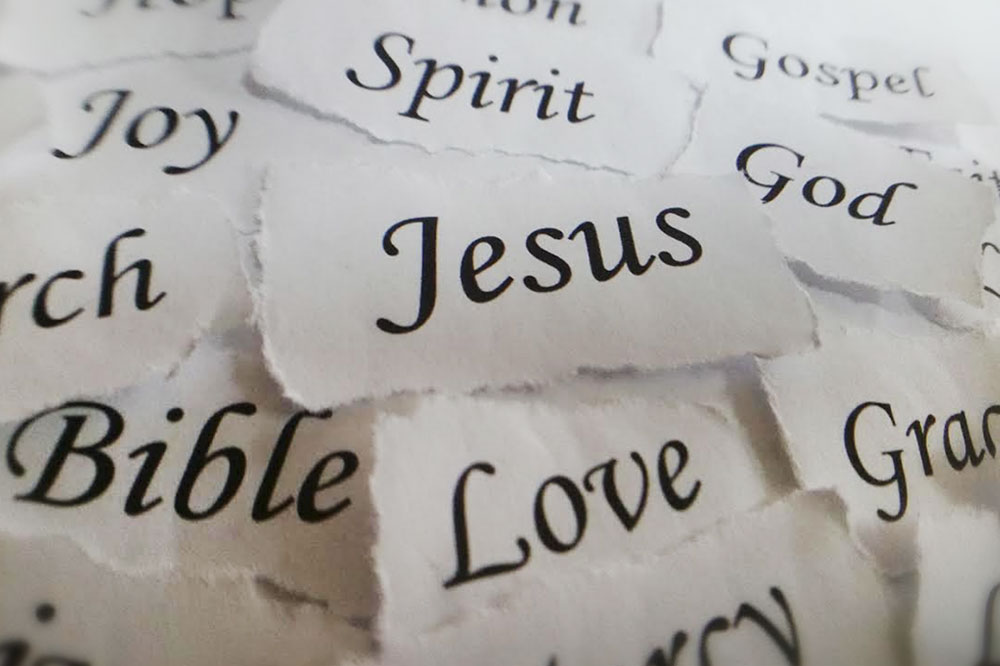 Spirit
Gospel
Joy
God
Jesus
rch
Bible
Love
Grac
rcy